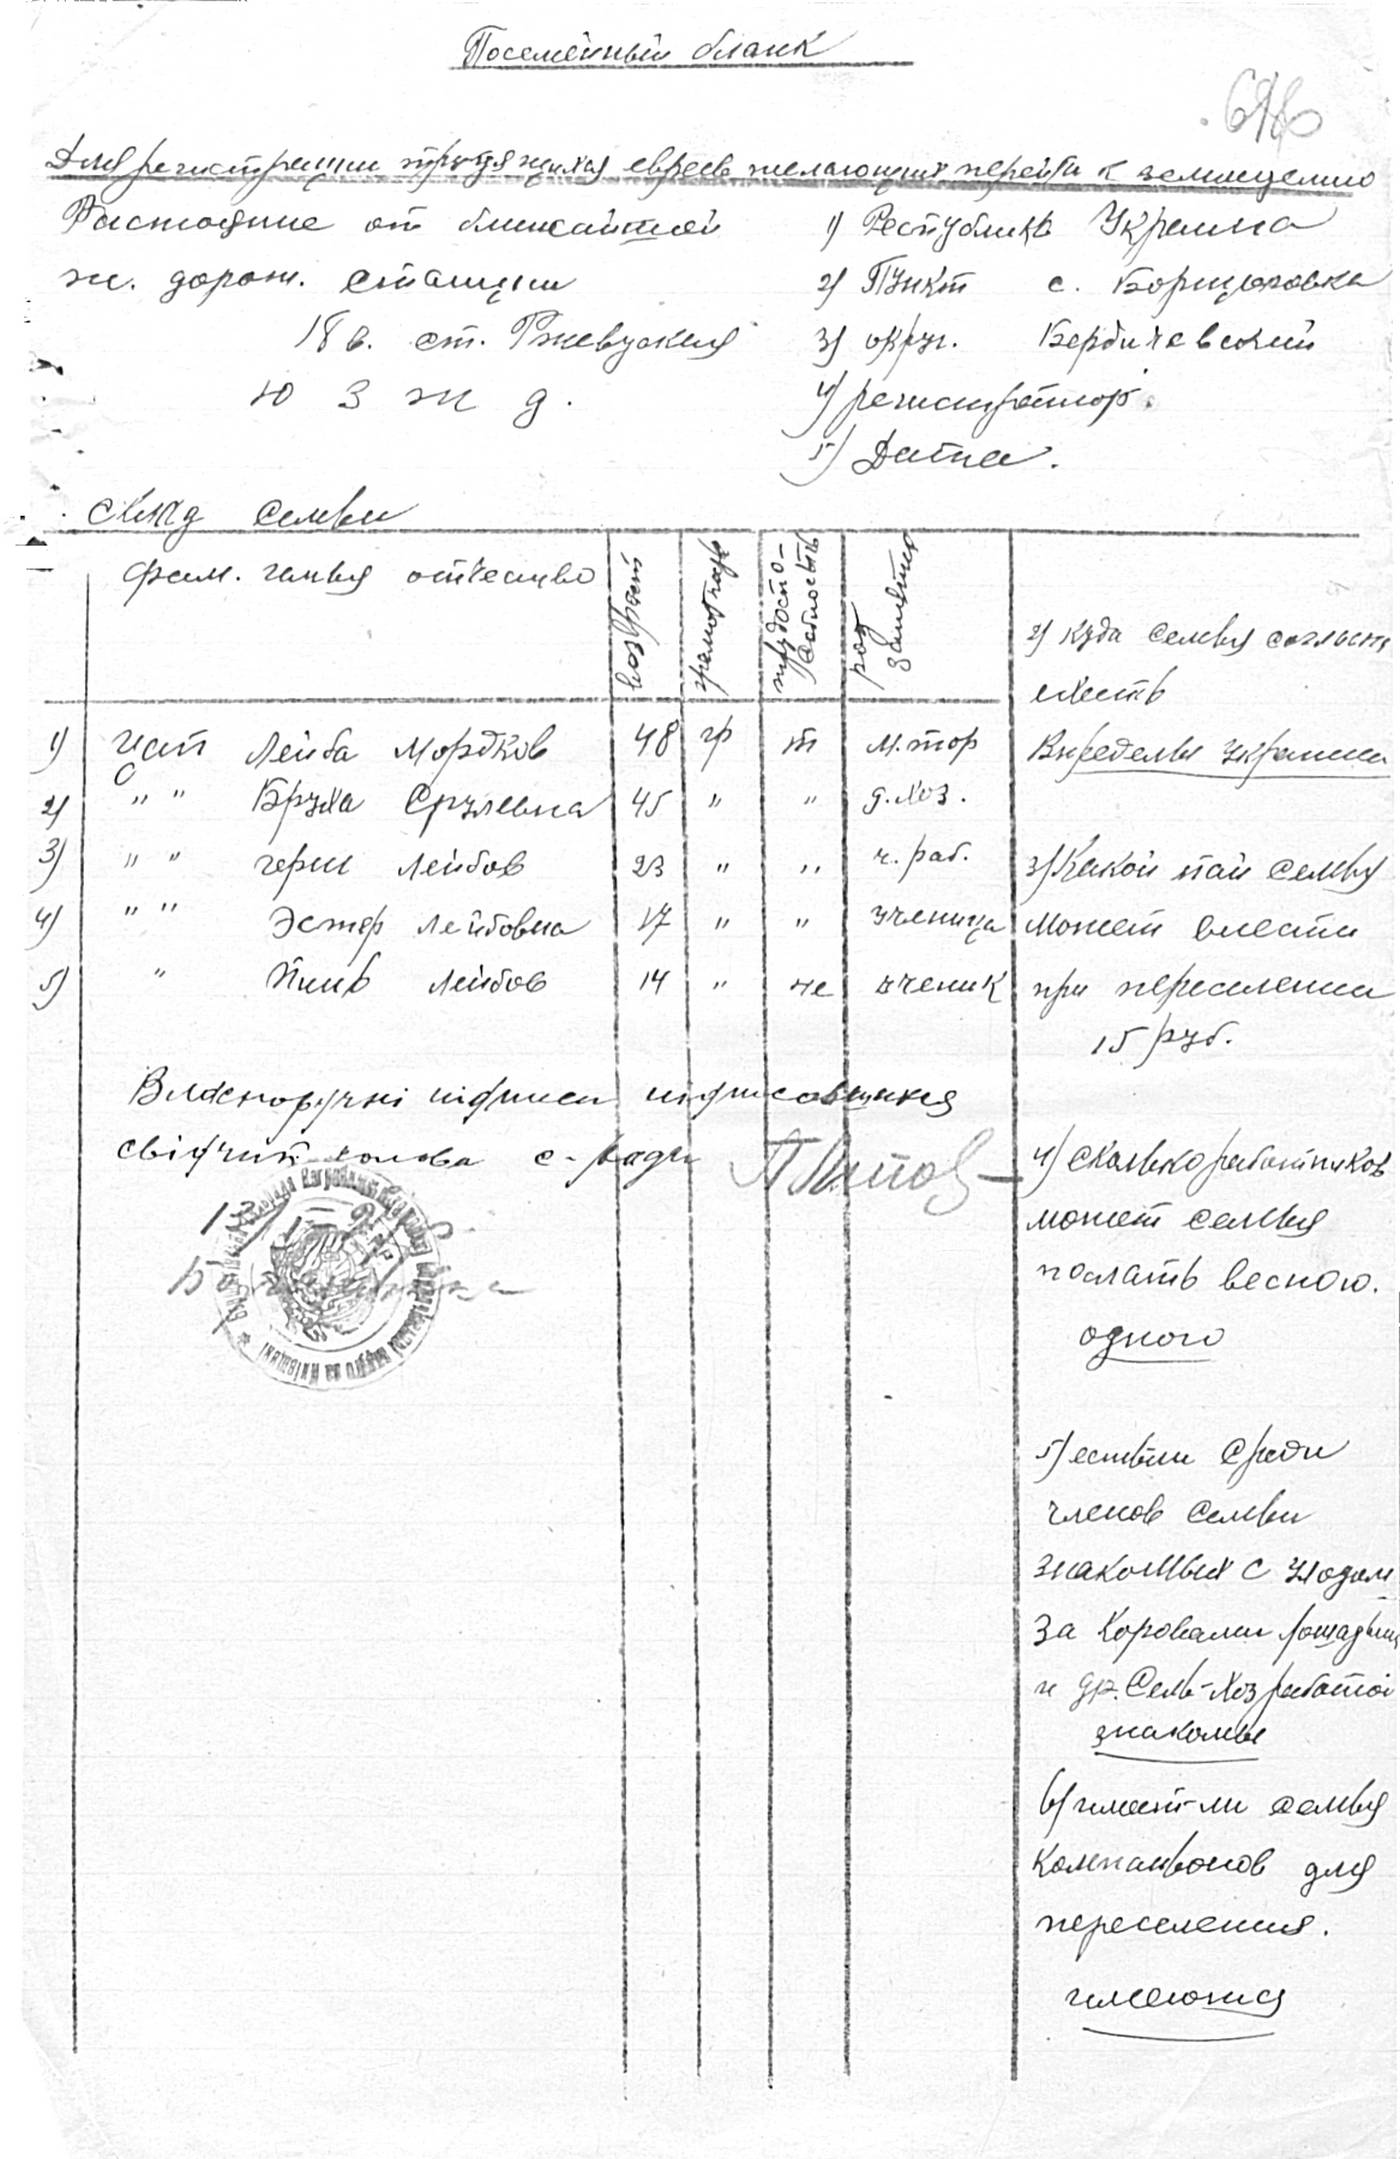 Посемейный бланк
Для регистрации трудящихся евреев желающих перейти к земледелию
Растояние от ближайшей
ж. дорож. станции
18 в. ст. Ржевуская
Ю З ж д.
1) Республика Украина
2) Пункт с. Борщаговка
3) округ. Бердичевский
4) регистратор.
5) Дата.
склад семьи
фам. имья отчество
возраст
грамотнар
трудоспо-
собность
род
занятия
1) Лейба Мордков 48 гр т м. тор
2) " " Бруха Срулевна 45 " " д. хоз.
3) " " герш Лейбов 23 " " ч. раб.
4) " " Эстер Лейбовна 17 " " ученица
5) " Лейбов 14 " не ученик
Власноручні підписи підписовщика
свідчит голова с-ради
2) куда семья согласн
ехать
В пределы украины
3) Какой пай семья
может внести
при переселении
15 руб.
4) сколько работников
может семья
послать весною.
одного
5) есть ли среди
членов семьи
знакомых с уходом
за коровами лошадьми
и др. Сель-хоз работой
знакомы
6) имеет-ли семья
компаньонов для
переселения.
имеются